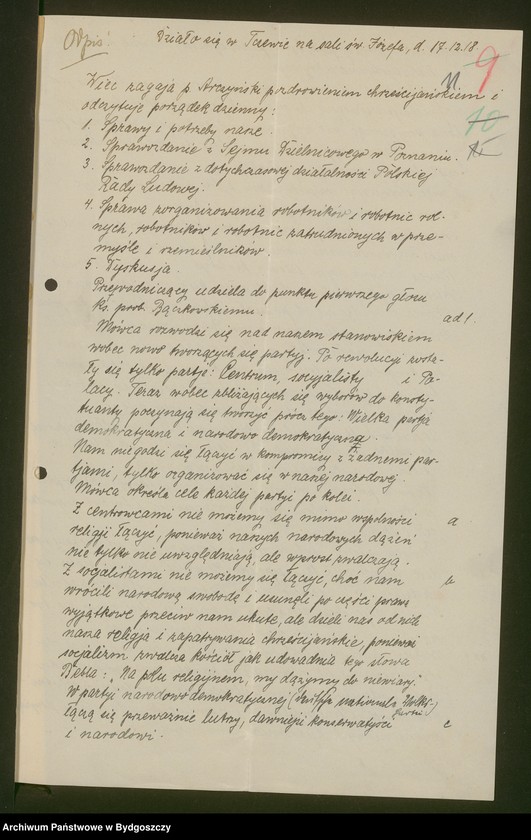 Odpis!
Działo się w Tczewie na sali św. Józefa, d. 17.12.18.
9
10
Wiec zagaja p. Arczyński pozdrowieniem chrześcijańskiem i
odczytuje porządek dzienny:
1. Sprawy i potrzeby nasze.
2. Sprawozdanie z Sejmu Dzielnicowego w Poznaniu.
3. Sprawozdanie z dotychczasowej działalności Polskiej
Rady Ludowej.
4. Sprawa zorganizowania robotników i robotnic rol-
nych, robotników i robotnic zatrudnionych w prze-
myśle i rzemieślników.
5. Dyskusja.
Przewodniczący udziela do punktu pierwszego głosu
ks. prob. Bączkowskiemu.
ad 1.
Mówca rozwodzi się nad naszem stanowiskiem
wobec nowo tworzących się partyj. Po rewolucyi zosta-
ły się tylko partje: Centrum, socyjaliści i Po-
lacy. Teraz wobec zbliżających się wyborów do konsty-
tuanty poczynają się tworzyć prócz tego: Wielka partja
demokratyczna i narodowo demokratyczna.
Nam niegodzi się łączyć w kompromisy z żadnemi par-
tjami, tylko organizować się w naszej narodowej.
Mówca określa cele każdej partyi po kolei.
Z centrowcami nie możemy się mimo wspólności
a
religji łączyć, ponieważ naszych narodowych dążeń
nie tylko nie uwzględniają, ale wprost zwalczają.
Z socjalistami nie możemy się łączyć, choć nam
b
wrócili narodową swobodę i usunęli po części prawa
wyjątkowe przeciw nam ukute, ale dzieli nas od nich
nasza religja i zapatrywania chrześcijańskie, ponieważ
socjalizm zwalcza kościół jak udowadnia tego słowa
Bebla: „Na polu religijnem, my dążymy do niewiary."
W partyi narodowo demokratycznej (deutsche nationale Volks-
partei)
łączą się przeważnie lutrzy, dawniejsi konserwatyści
c
i narodowi.
Archiwum Państwowe w Bydgoszczy